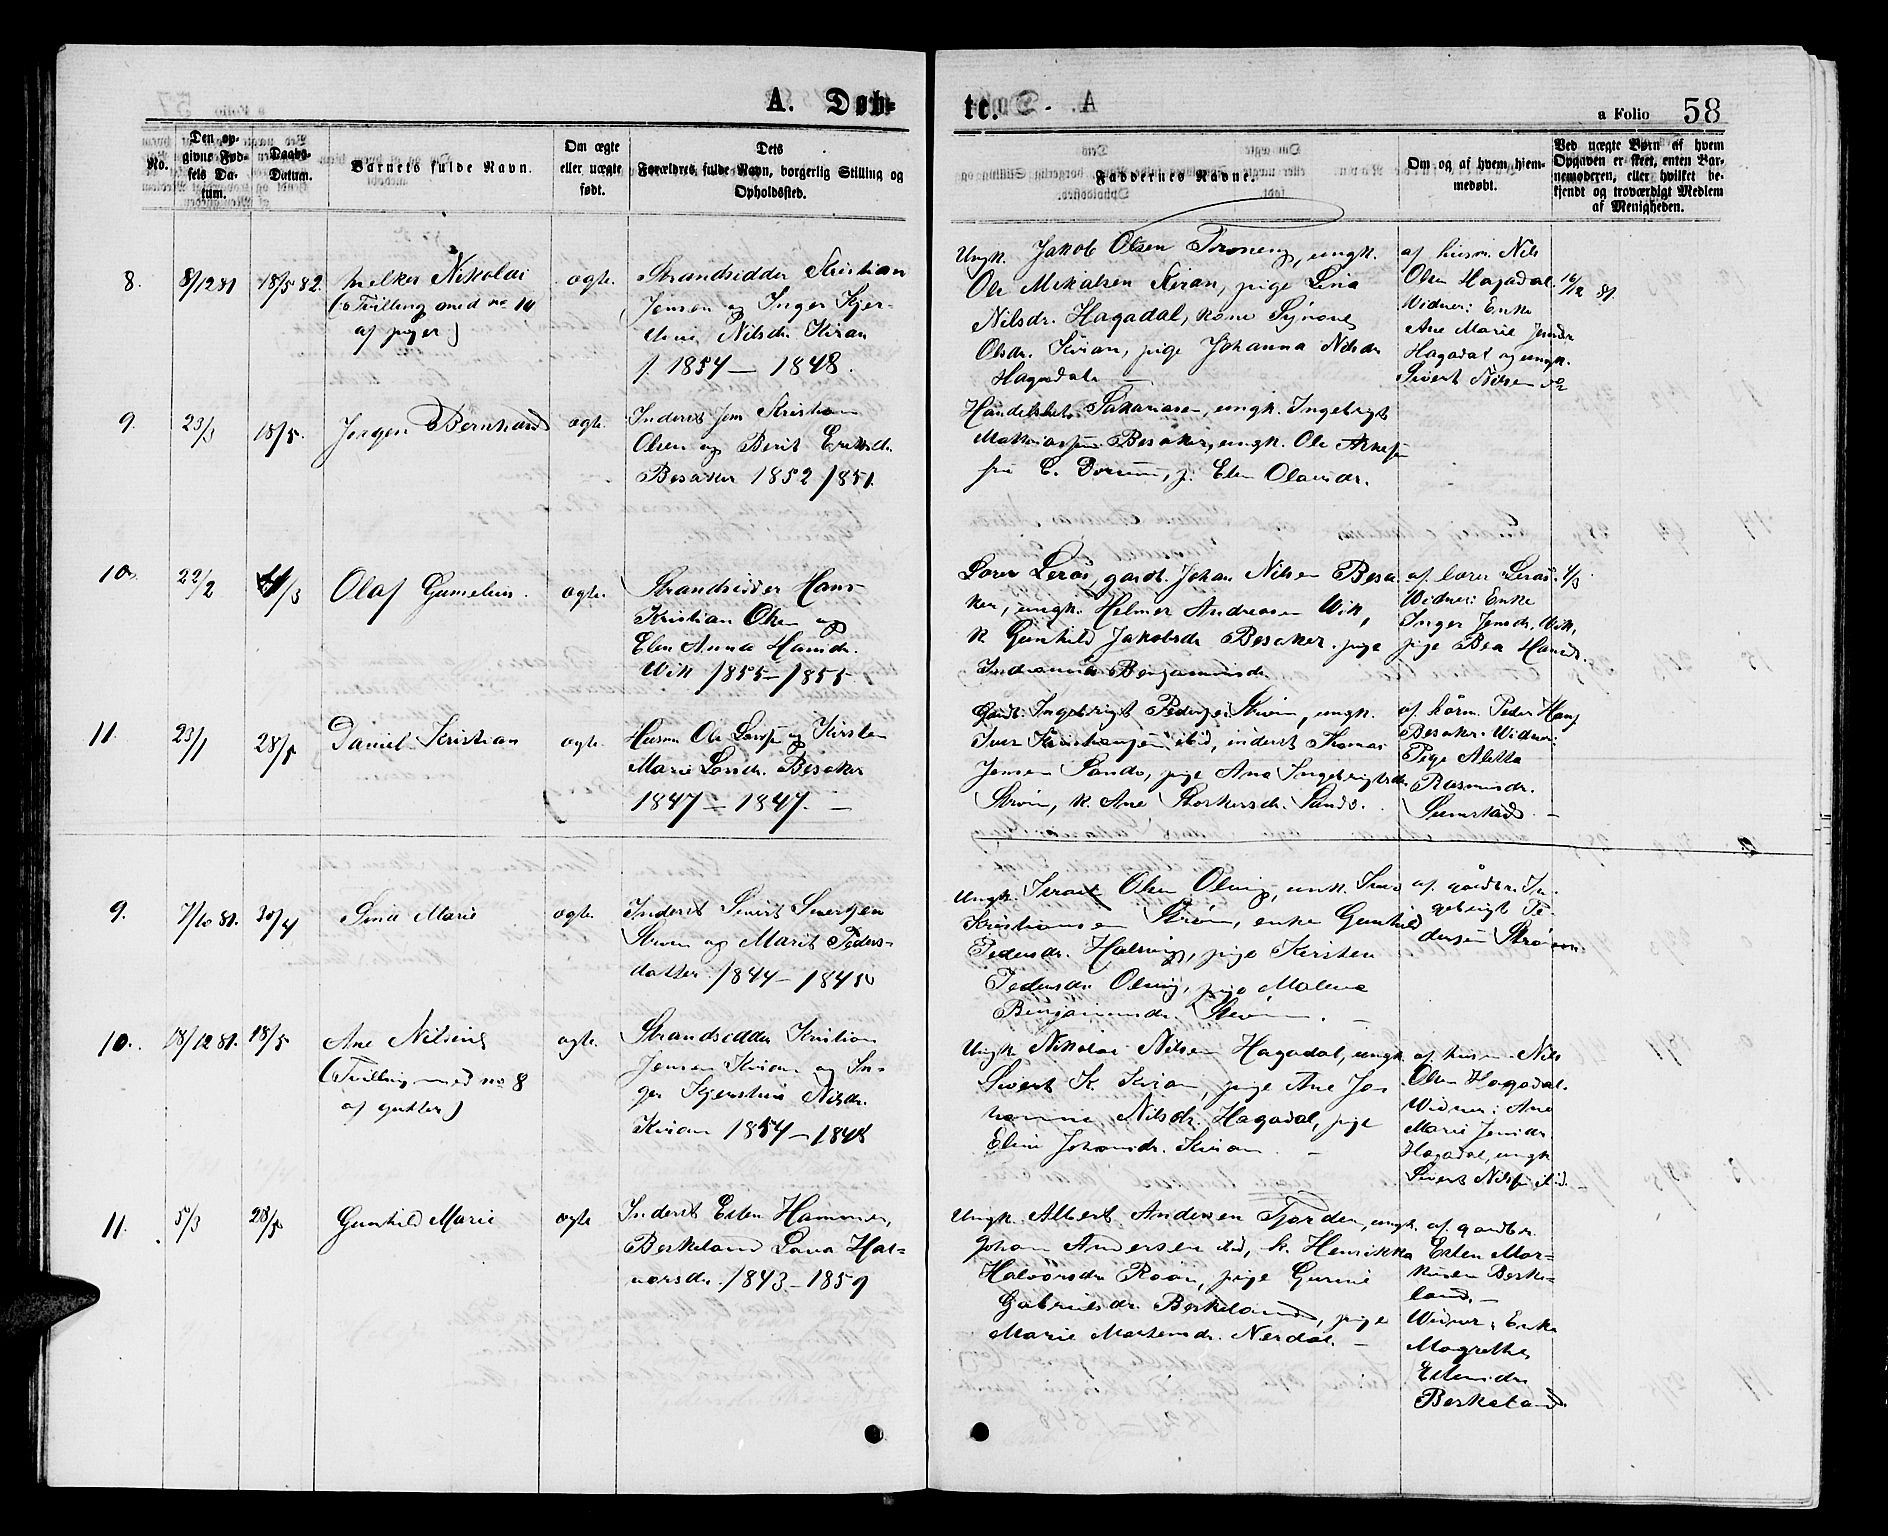 A. Døb-
te.
a Folio 58
No.
Den op-
givne Fød-
sels Da-
tum.
Daabs-
Datum.
Barnets fulde Navn.
Om ægte
eller uægte
født.
Dets
Forældres fulde Navn, borgerlig Stilling og
Opholdssted.
Faddernes Navne.
Om og af hvem hjem-
medøbt.
Ved uægte Børn af hvem
Opgaven er skeet, enten Bar-
nemoderen, eller hvilket be-
kjendt og troværdigt Medlem
af Menigheden.
8.
18/5 82.
Nikolai
(Tvilling med no 10
af piger)
ægte.
Strandsidder Kristian
Jensen og Inger Kjer-
stine Nilsdr. Kiran
f. 1854 — 1848.
Ungk. Jakob Olsen Troneng, ungk.
Ole Mikalsen Kiran, pige Lina
Nilsdr. Hagadal, kone
Olsdr. Kiran, pige Johanna Nilsdr
Hagadal. —
af husm. Nils
Olsen Hagadal.
Widner: Enke
Ane Marie Jensdr
Hagadal og ungk.
Sivert Nilsen
16/12 81.
9.
23/3
18/5.
Jørgen Bernhard
ægte.
Inderst Kristian
Olsen og Berit Eriksdr.
Besaker 1852 1851.
Sakariasen, ungk. Ingebrigt
Besaker, ungk. Ole
p. Elen Olausdr.
10.
22/2
/3
Olaf Gumelius.
ægte.
Strandsidder Hans
Kristian Olsen og
Elen Anna Hansdr.
Wik 1855 — 1855.
Lærer Lerøs, gaardt. Johan Nilsen Besa
ker, ungk. Helmer Andreasen Wik,
k. Gunhild Jakobsdr Besaker. pige
Benjaminsdr.
af lærer Lerøs.
Widner: Enke
Inger Jensdr. Wik,
pige Bea Hansdr.
4/3
11.
23/1
28/5
Daniel Kristian
ægte.
Husm Ole og Kirsten
Marie Besaker
1847 — 1847. —
Ingebrigt Strøm, ungk.
ibid, inderst Thomas
Jensen Sando, pige Ana Ingebrigtsdr
Strøm, k. Ane Sando.
af Peder
Besaker. Widner:
Pige Aletta
Rasmusdr.
Sumstad. —
9.
7/10 81.
30/4
Sina Marie
ægte.
Inderst Sivert
Strøm og Marit Peders-
datter. 1844 — 1845
Ungk. Olsen Olming, ungk.
Kristiansen Strøm, enke Gunhild
Pedersdr. pige Kirsten
Pedersdr. pige Malene
Benjaminsdr. Strøm. —
af gaardbr. In-
gebrigt Pe-
dersen Strøm.
10.
18/12 81.
18/5
Ane Nilsine
(Tvilling med no 8
af gutter)
ægte.
Strandsidder Kristian
Jensen Kiran og In-
ger Kjerstine Nilsdr.
Kiran 1854 — 1848
Ungk. Nikolai Nilsen Hagadal, ungk
Sivert K. Kiran, pige Ane Jo
hanna Nilsdr. Hagadal, pige
Eline Johansdr. Kiran. —
af husm. Nils
Olsen Hagadal.
Widner: Ane
Marie Jensdr
Hagadal, ungk
Sivert Nilsen ibid. —
11.
5/3
28/5
Gunhild Marie
ægte
Inderst Esten
Berkeland Hal-
vorsdr. 1843 — 1859
Ungk. Albert Andersen Fjorden, ungk.
Johan Andersen ibid, k. Henrikka
Halvorsdr pige Gurine
Gabrielsdr Berkeland, pige
Marie Mortensdr. Nerdal. —
af gaardbr.
Esten Mar-
kusen Berke-
land. —
Widner: Enke
Magrethe
Estensdr
Berkeland.